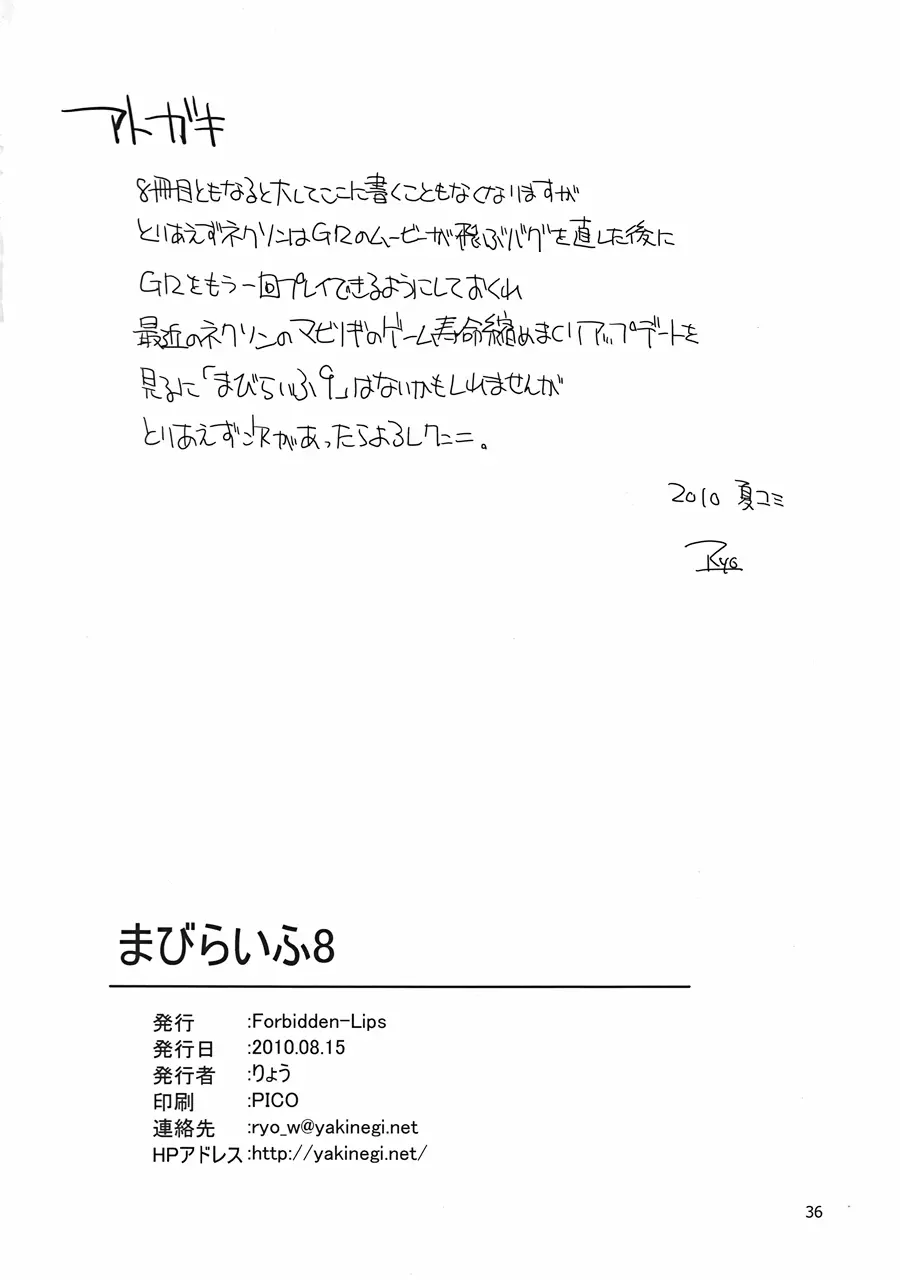 アトガキ
8冊目ともなると大してここに書くこともなくなりますが
とりあえずネクソンはG12のムービーが飛ぶバグを直した後に
G12をもう一回プレイできるようにしておくれ
最近のネクソンのマビノギのゲーム寿命縮めまくりアップデートを
見るに「まびらいふ9」はないかもしれませんが
とりあえず次があったらよろしクニニ。
2010 夏コミ
Ryo
まびらいふ8
発行 :Forbidden-Lips
発行日 :2010.08.15
発行者 :りょう
印刷 :PICO
連絡先 :ryo_w@yakinegi.net
HPアドレス :http://yakinegi.net/
36